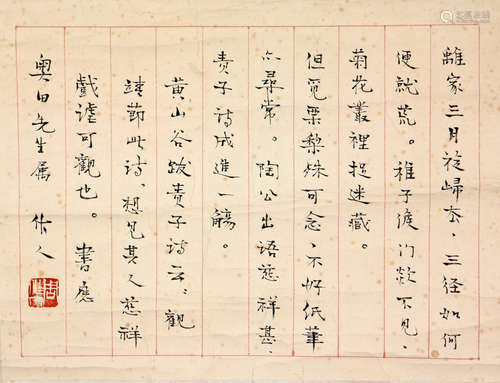 離家三月旋歸去、三径如何
便就荒。稚子候门欻不見、
菊花叢裡捉迷藏。
但覓栗梨殊可念、不好纸筆
亦尋常。陶公出语慈祥甚、
责子诗成進一觴。
黄山谷跋责子诗云、觀
靖节此诗、想见其人慈祥
戲谑可觀也。書應
奥田先生属 作人